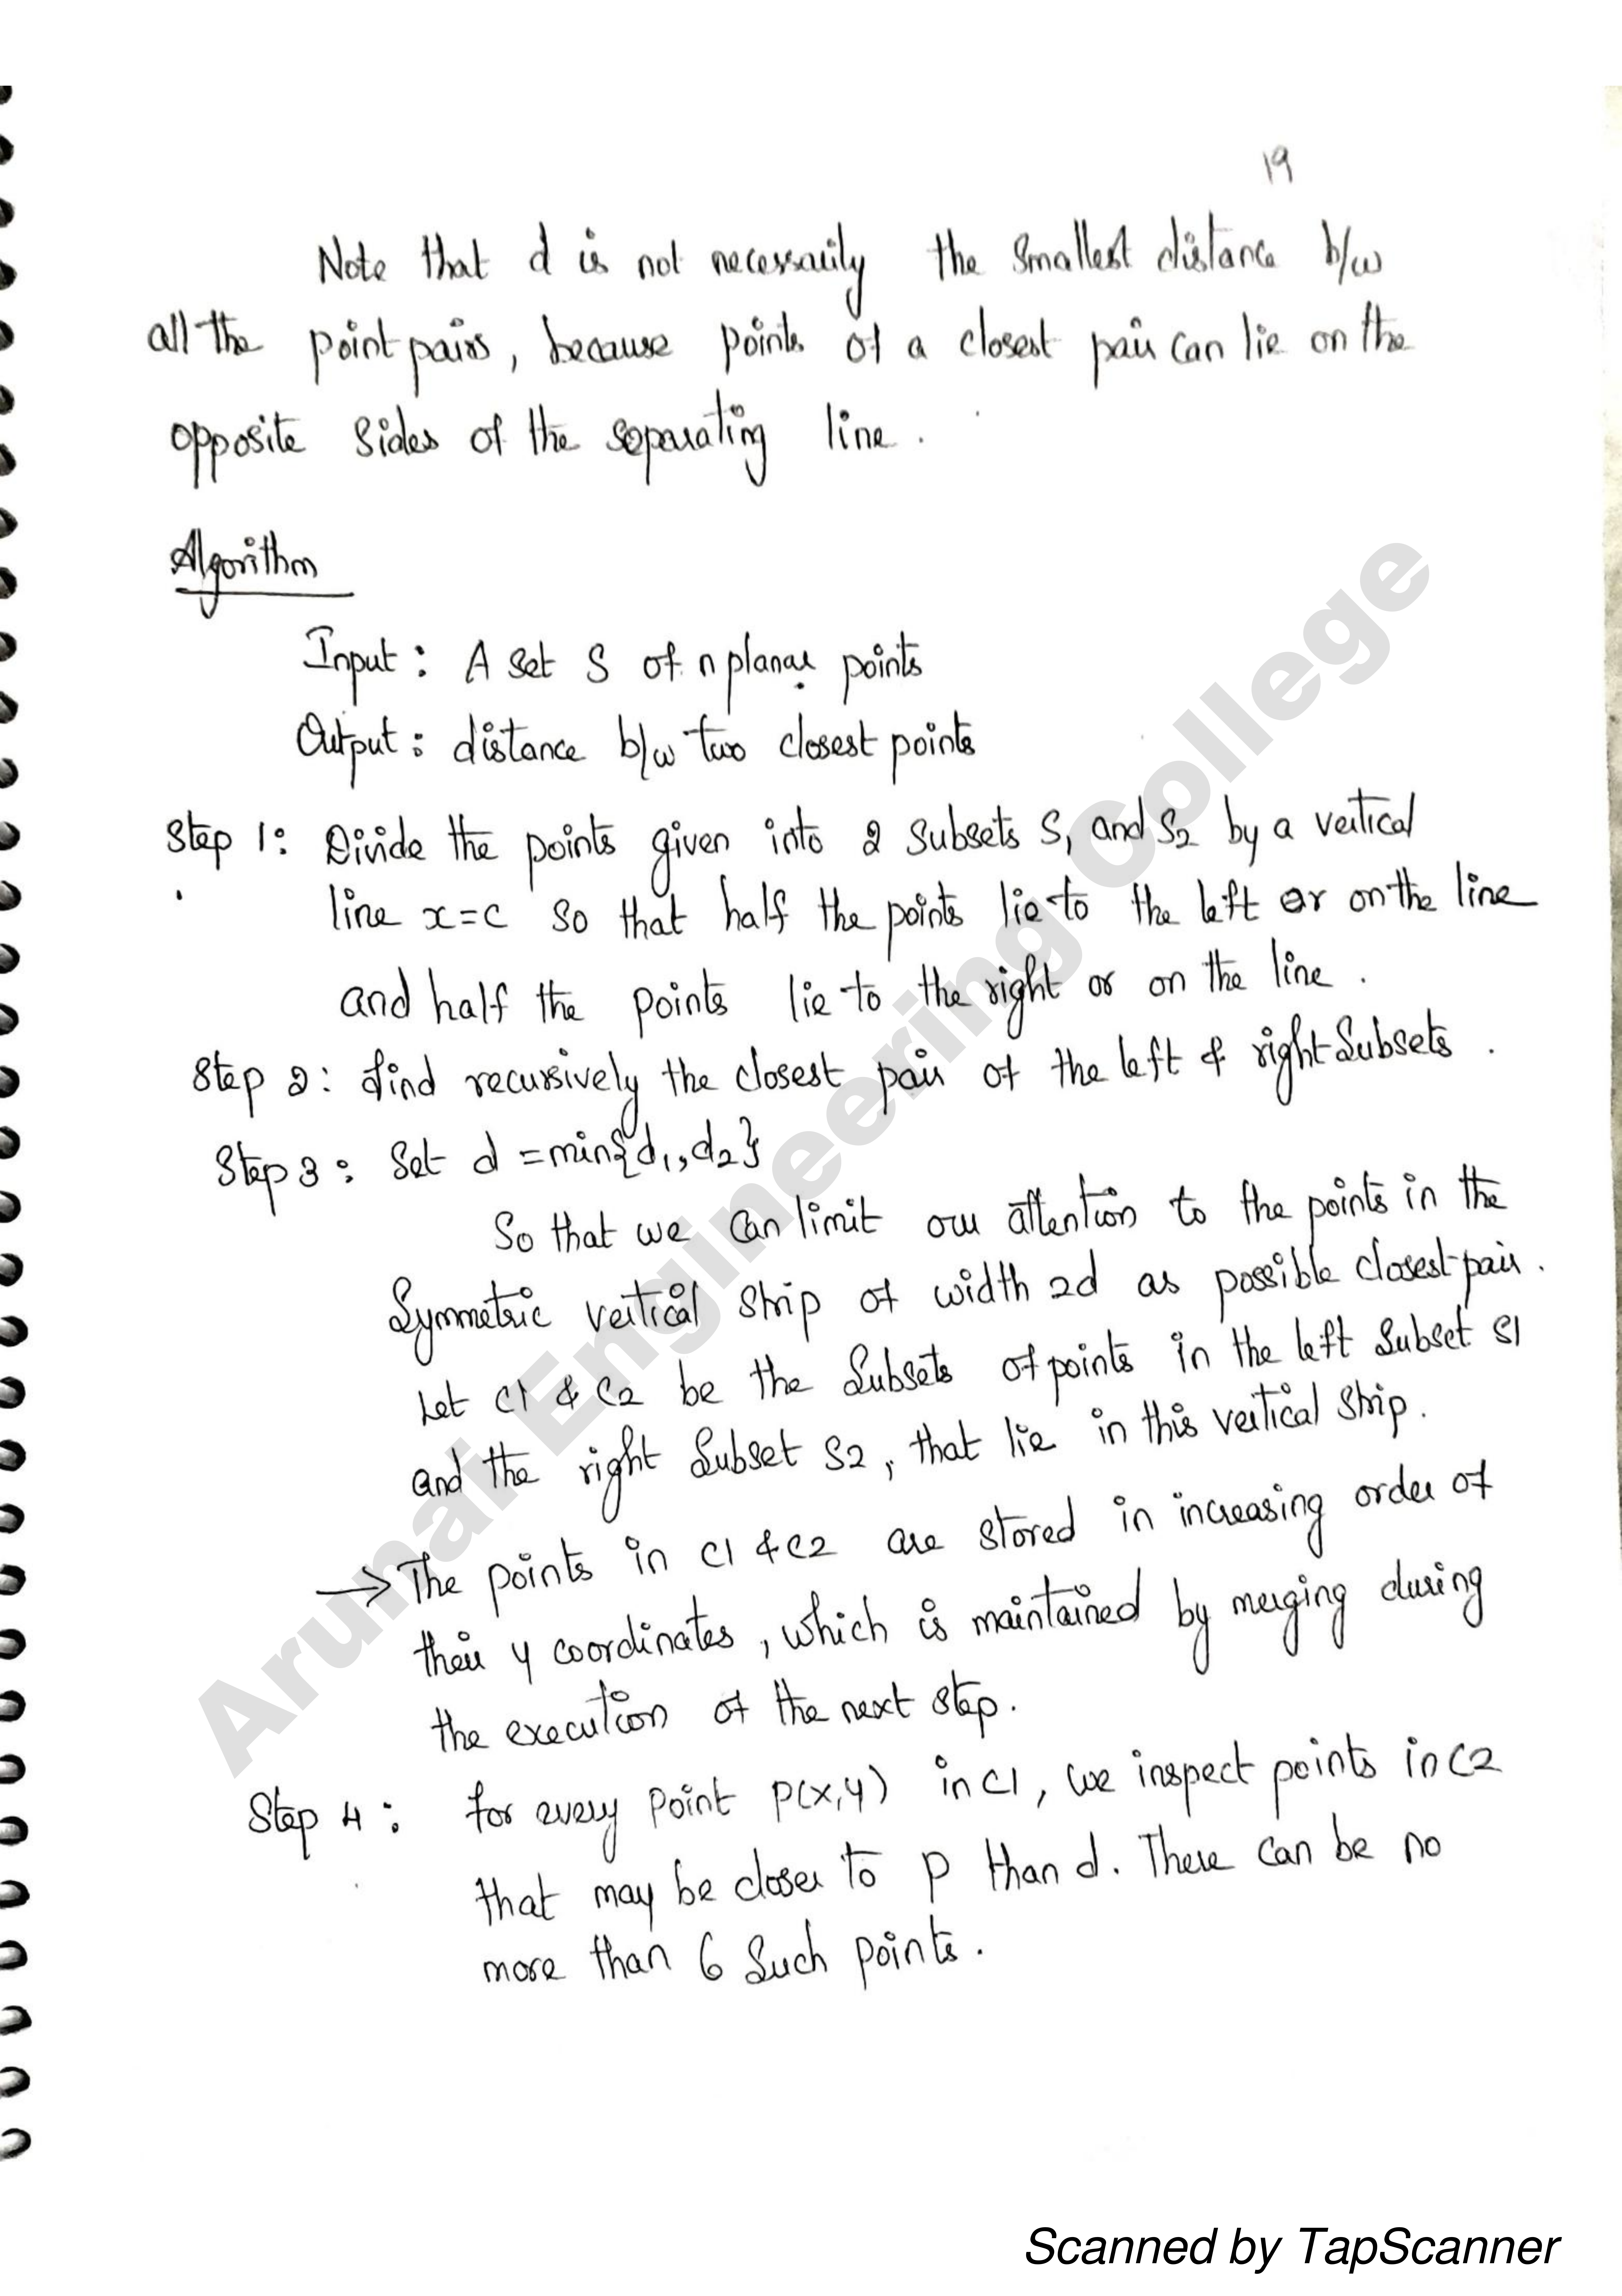 19
Note that d is not necessarily the smallest distance b/w
all the point pairs, because points of a closest pair can lie on the
opposite sides of the separating line.
Algorithm
Input: A set S of n planar points
Output: distance b/w two closest points
Step 1: Divide the points given into 2 subsets S1 and S2 by a vertical
line x=c so that half the points lie to the left or on the line
and half the points lie to the right or on the line.
Step 2: find recursively the closest pair of the left & right subsets.
Step 3: Set d = min{d1,d2}
So that we can limit our attention to the points in the
Symmetric vertical strip of width 2d as possible closest pair.
Let C1 & C2 be the Subsets of points in the left Subset S1
and the right Subset S2, that lie in this vertical strip.
→ The points in C1 & C2 are stored in increasing order of
their y coordinates, which is maintained by merging during
the execution of the next step.
Step 4: for every point P(x,y) in C1, we inspect points in C2
that may be closer to p than d. There can be no
more than 6 such points.
Arunai Engineering College
Scanned by TapScanner